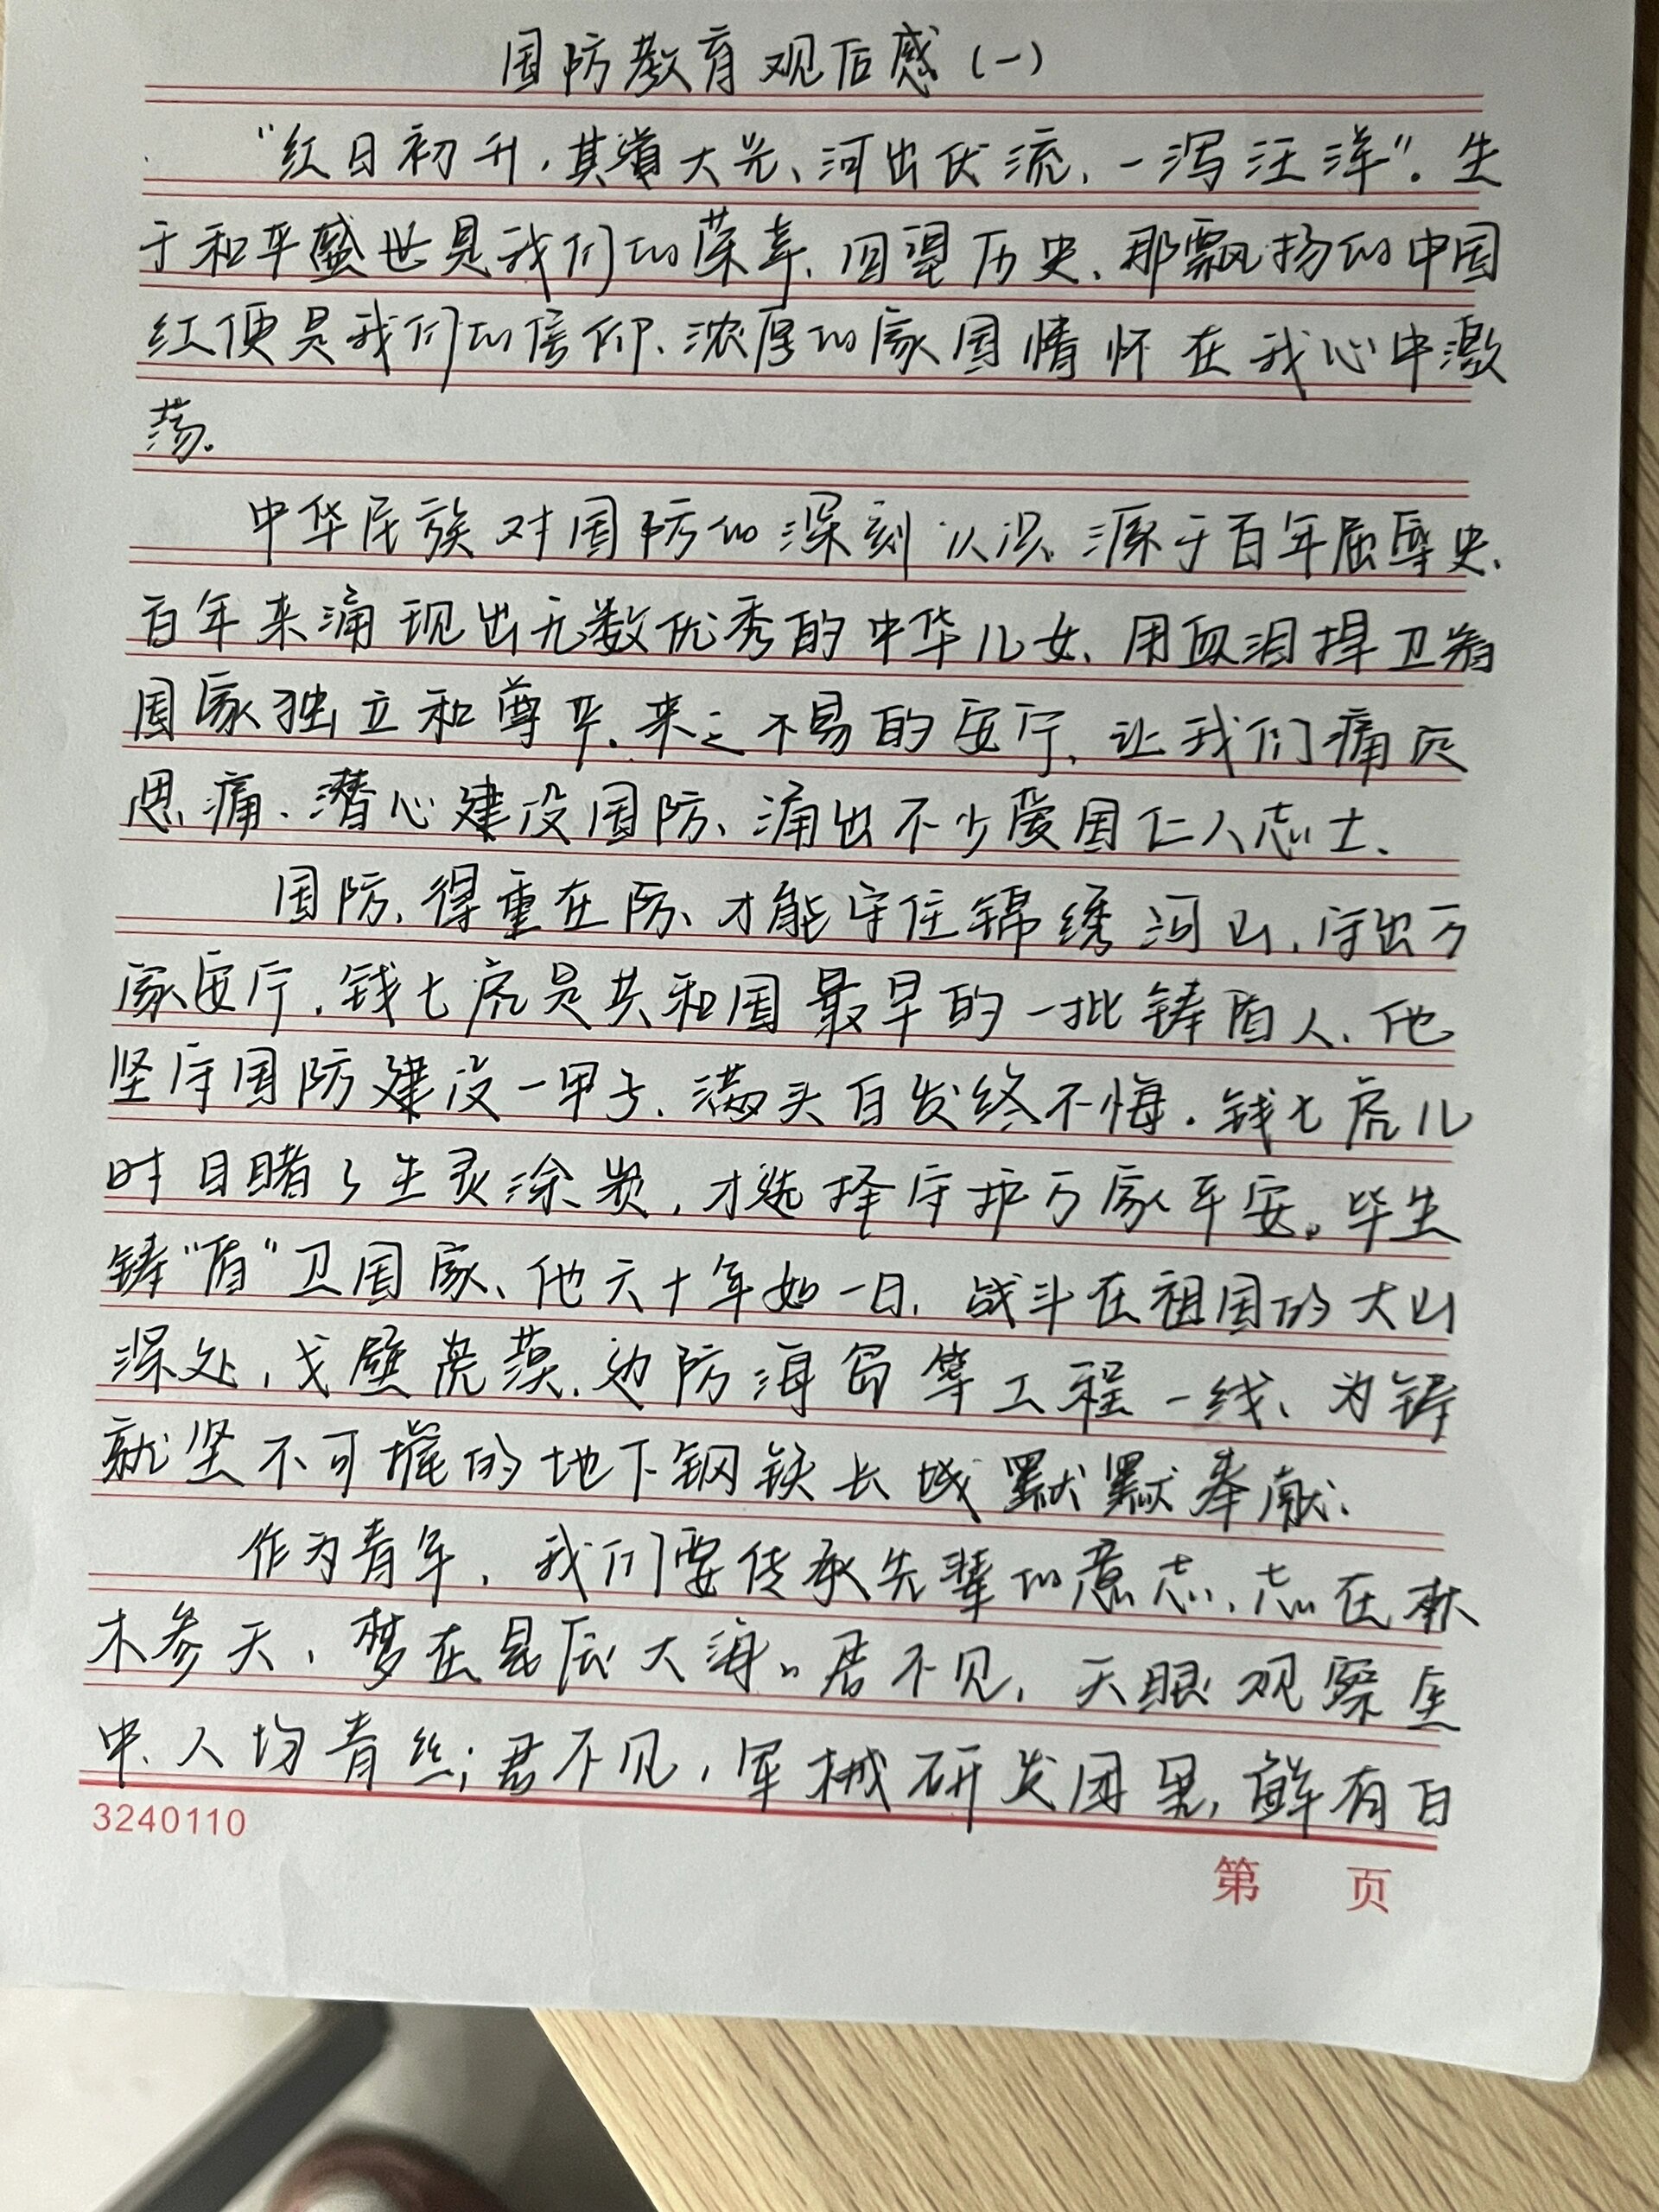 国防教育观后感（一）
“红日初升，其道大光、河出伏流，一泻汪洋”。生
于和平盛世是我们的荣幸，回望历史，那飘扬的中国
红便是我们的信仰、浓厚的家国情怀在我心中激
荡。
中华民族对国防的深刻认识，源于百年屈辱史，
百年来涌现出无数优秀的中华儿女，用血泪捍卫着
国家独立和尊严。来之不易的安宁，让我们痛定
思痛、潜心建设国防、涌出不少爱国仁人志士、
国防，得重在防、才能守住锦绣河山，守出万
家安宁。钱七虎是共和国最早的一批铸盾人、他
坚守国防建设一甲子、满头白发终不悔。钱七虎儿
时目睹了生灵涂炭，才选择守护万家平安。毕生
铸“盾”卫国家、他六十年如一日，战斗在祖国的大山
深处，戈壁荒漠、边防海岛等工程一线、为铸
就坚不可摧的地下钢铁长城默默奉献、
作为青年，我们要传承先辈的意志，志在
木参天，梦在星辰大海。君不见，天眼观察室
中、人均青丝；君不见，军械研发团里，鲜有白
3240110
第 页